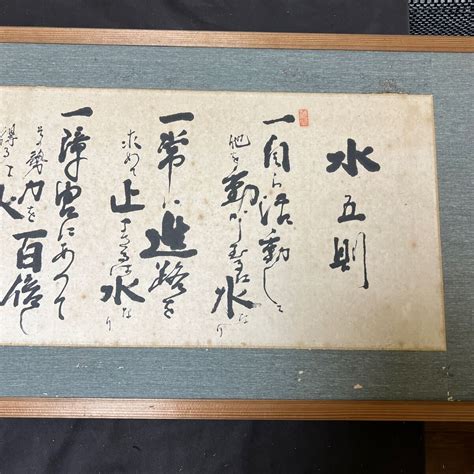 水五則
一自ら活動して
他を動かしむるは水なり
一常に進路を
求めて止まざるは水なり
一障害にあつて
勢力を百倍し
得るは水